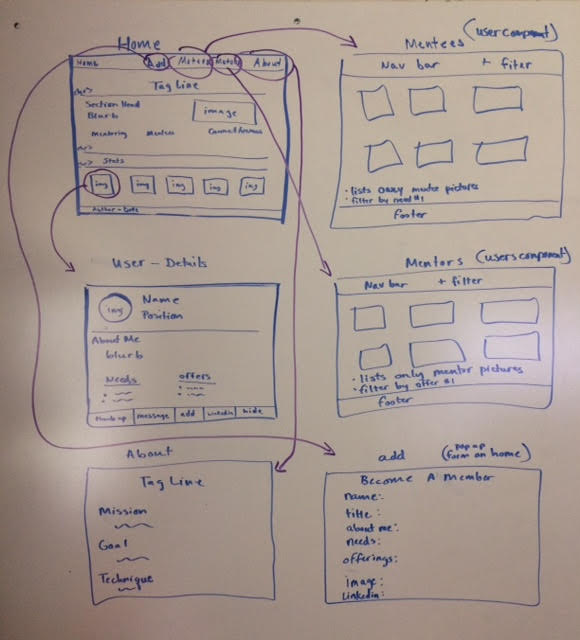 Home
Home Add Mentees Mentors About
Tag Line
<hr>
Section Head
Blurb
image
mentoring
<hr>
<hr> Stats
img img img img img
Author - Date
Mentees (user component)
Nav bar + filter
• lists only mentee pictures
• filter by need #1
footer
User - Details
img
Name
Position
About Me
blurb
Needs offers
Thumbs up message add Linkedin hide
Mentors (users component)
Nav bar + filter
• lists only mentor pictures
• filter by offer #1
footer
About
Tag Line
Mission
Goal
Technique
add (pop up form on home)
Become A Member
name:
title:
about me:
needs:
offerings:
image:
Linkedin: